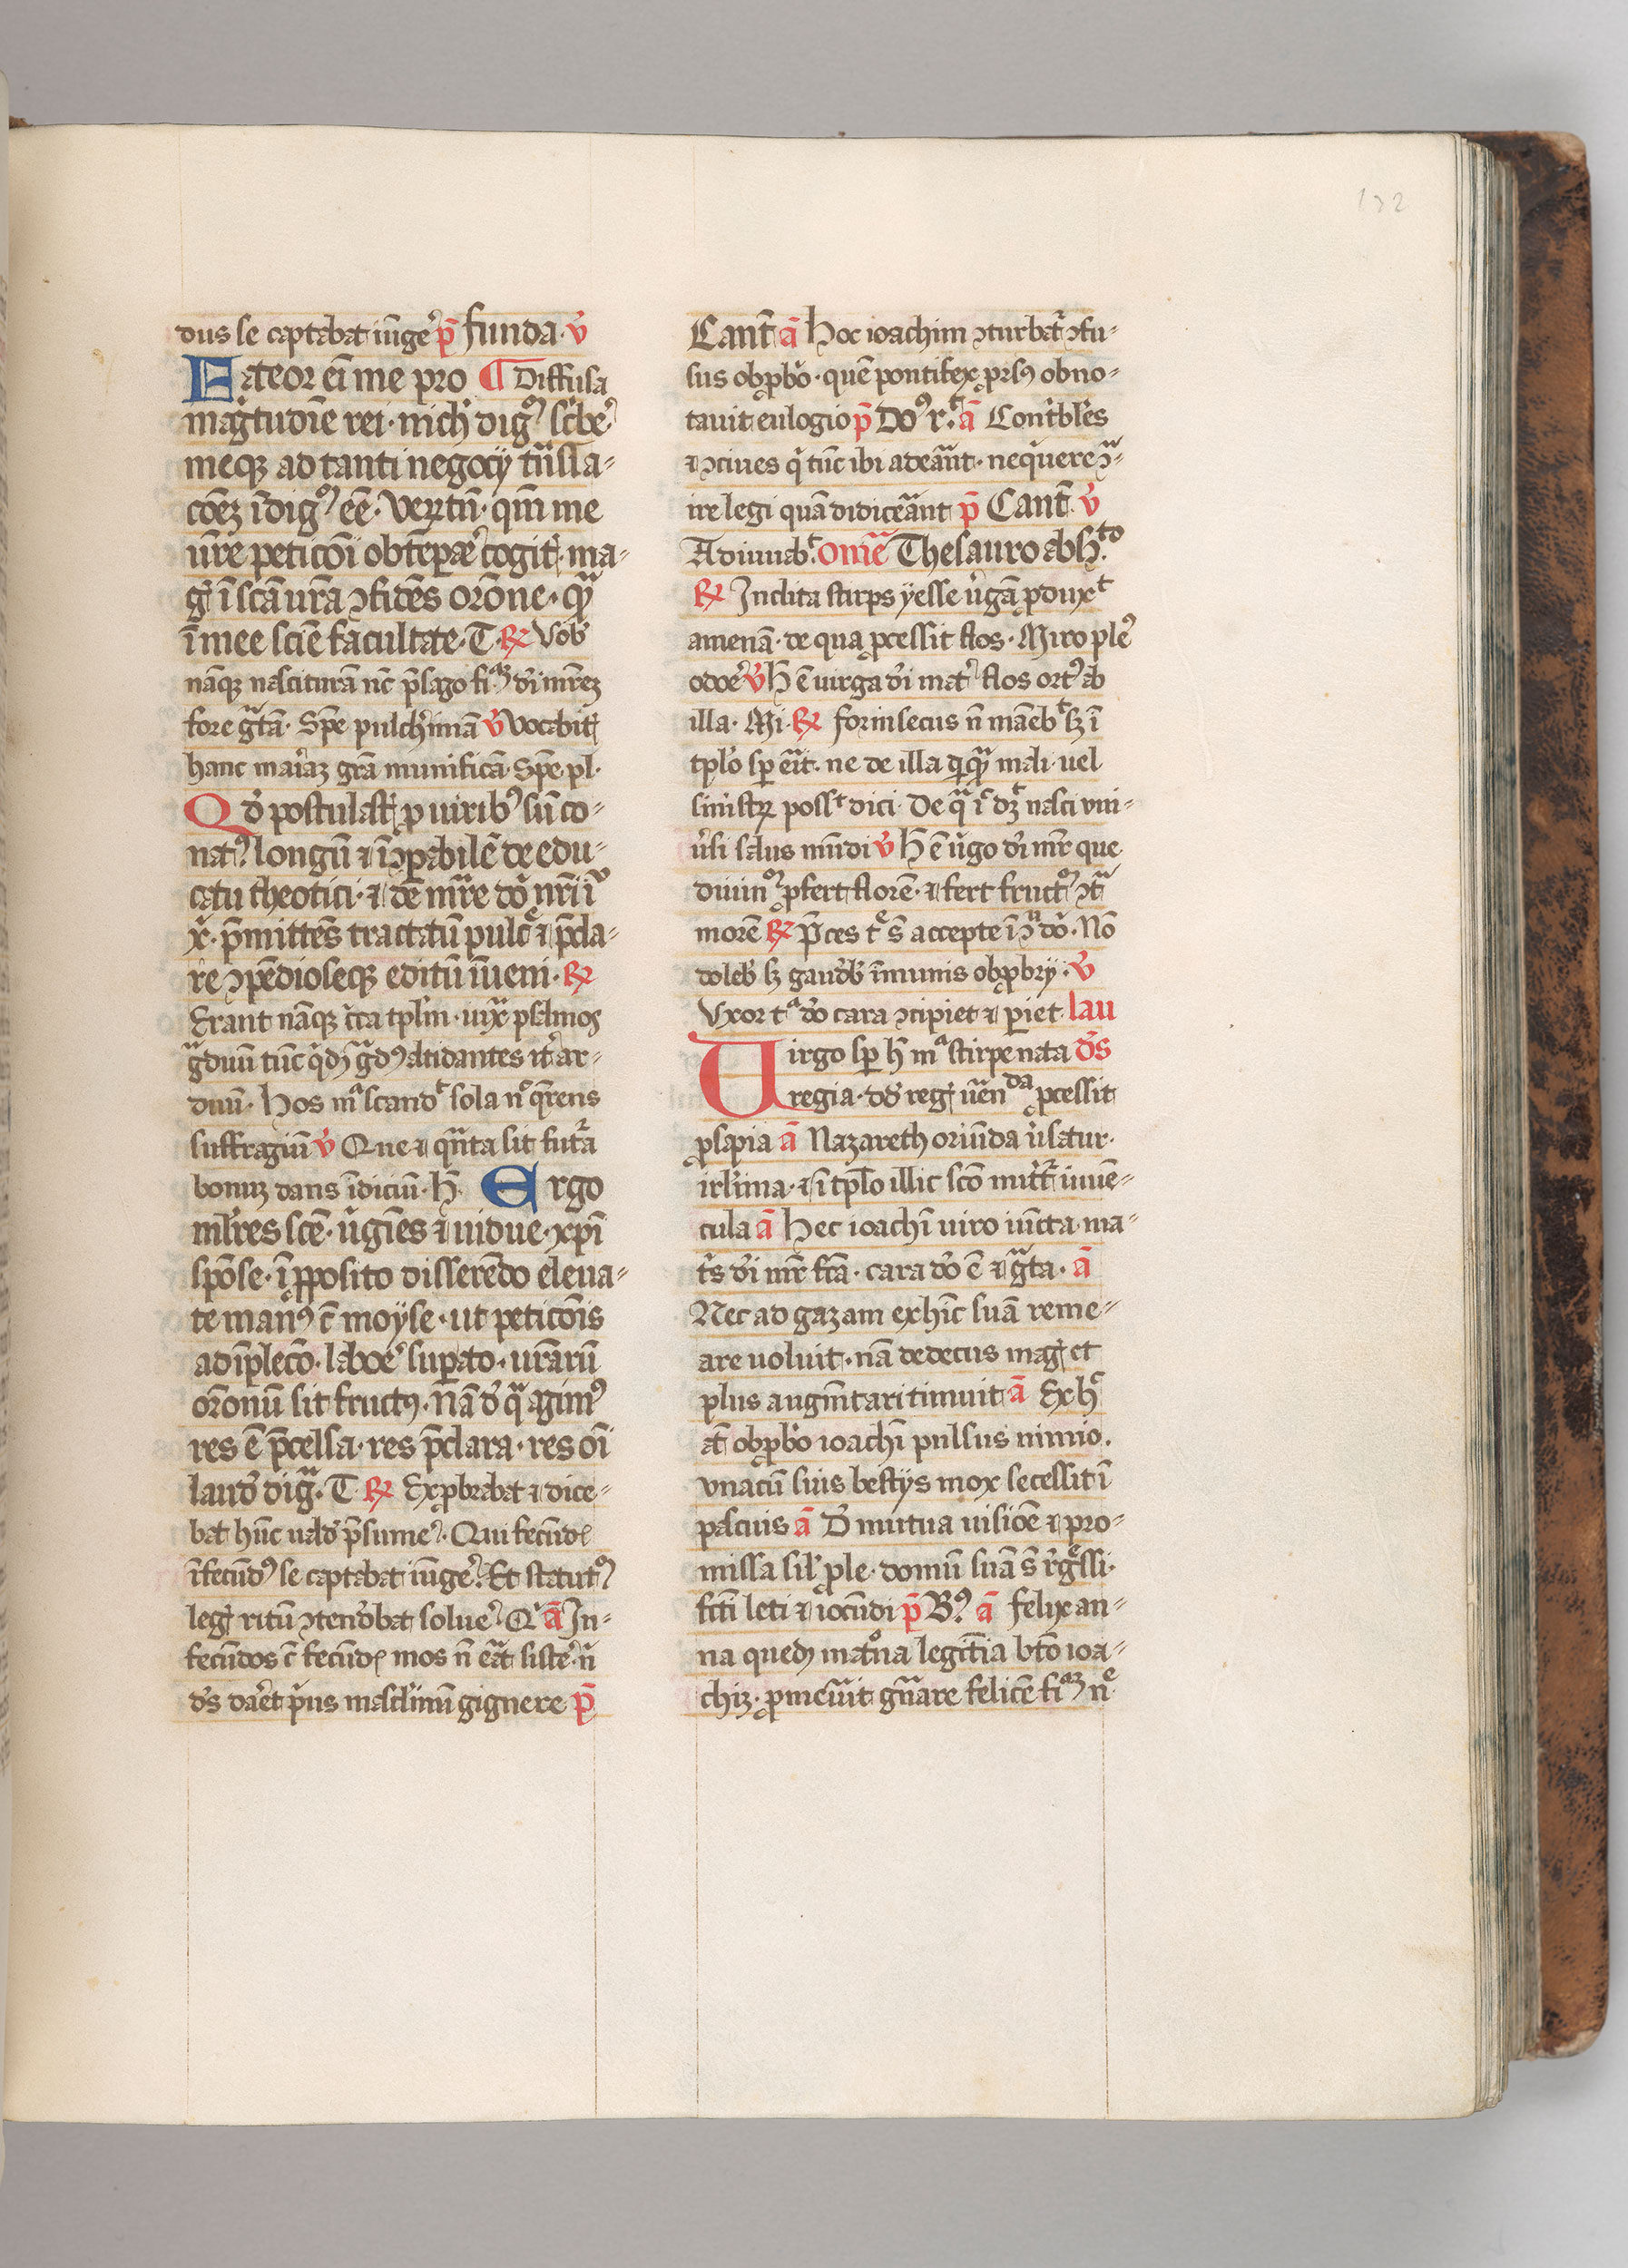 132
dus se captabat iūgeˀ p̄ funda. v̄
Fateor eī me pro ¶ Diffusa
mag̾tudīe rei. nich̾ digꝰ sc̾beˀ
meqꝫ ad tanti negocij tn̄sla-
cōeꝫ īdigꝰ eē. Veꝝtn̄. qm̄ me
vr̄e peticōi obtēperaˀ cogit̾. ma-
g̾ ī scā vr̄a ꝯfidēs orōne. qͣ
ī mee sciē facultate. T. ℟ Vob̾
nāqꝫ nascitura nc̄ p̄sago fiᵃꝫ dī mr̄eꝫ
fore gͣtā. Spē pulch̾imā v̄ Vocabit̾
hanc mariaꝫ grā munificā. Spē pl.
Qd̾ postulast̾ ꝓ viribꝰ sū co-
natꝰ longū ⁊ īꝯpabilē de edu-
catu theotici. ⁊ de mr̄e dn̄i nr̄i iū
x̄. p̄mittēs tractatū pulcͤ ⁊ p̄cla-
re ꝯpēdioseqꝫ editū īveni. ℟
Erant nāqꝫ c̾ca tp̄lm. iuxͣ psalmos
gͣduū tūc qͥdꝫ gͣdꝰ ascidantes it̾ ar-
duū. Hos mᵃ scandᵗ sola nº qͣrens
suffragiū v̄ Que ⁊ qn̄ta sit futͣra
bonuꝫ dans īdiciū. h̄. Ergo
ml̾res scē. v̾gīes ⁊ vidue. xp̄i
spōse. ī ꝓposito disserēdo eleua-
te manꝰ c̄ moyse. ut peticōis
adīplecō. laboeˀ supato. vr̄arū
orōnū sit fructꝰ. Nā d̾ qͣ agimꝰ
res ē p̄celsa. res p̄clara. res oī
laud̾ digͣ. T ℟ Exꝓbrabat ⁊ dice-
bat hūc vald̾ p̄sumeˀ. Qui fecūdꝭ
īfecūdꝰ se captabat iūgeˀ. Et statutꝰ
leg̾ ritū ꝯtend̾bat solueˀ. Qͥ ā In-
fecūdos c̄ fecūdꝭ mos n̄ eͣt sisteˀ. n̾
d̾s daret pͥus masclīnū gignere p̄
Cant̄ ā Hoc ioachim ꝯturbat̾ ꝯfu-
sus obꝓbͦ. quē pontifex ꝓrsꝰ obno-
tavit eulogio p̄ Doꝰ r̾. ā Cont̾bl̾es
⁊ ꝯciues qͥ tūc ibi adeͣnt. nequere ꝯͣ-
ire legi quā didiceͣnt p̄ Cant̄. v̄
Adiuuabᵗ. Omēͣ Thesauro absᵗᵒ
℟ Inclita stirps yesse v̾gā ꝓduxᵗ
amenā. de qua ꝓcessit flos. Miro pleˀ
odoeˀ v̄ H̄ ē virga dī mat̾ flos ortꝰ ab
illa. Mi. ℟ forinsecus n̄ manebᵗ sꝫ ī
tp̄lo sp̄ eͣit. ne de illa qͥqͣ mali. vel
sinistꝝ possᵗ dici. De qͣ ī dꝫᵗ nasci vni-
v̾si salus mūdi v̄ H̄ ē v̾go dī mr̄ que
diuinꝰ ꝓfert florē. ⁊ fert fructꝰ ꝯtͣ
morē ℟ P̄ces tͤ s̄ accepte īꝯ dō. Nō
doleb̾ sꝫ gaud̾b̾ īmunis obꝓbrij. v̄
Vxor tᵃ dō cara ꝯcipiet ⁊ pariet. lau
Virgo sp̄ h̄ mᵃ stirpe nata d̾s
regia. dd̾ reg̾ vēnᵈᵃ ꝓcessit
ꝓsapia ā Nazareth oriūda v̾satur.
irl̾ima. ⁊ ī tp̄lo illic scō mit̾t̾ iuuē-
cula ā Hec ioachī viro iūcta. ma-
t̾s dī mr̄ fcā. cara dō ē ⁊ gͣta. ā
Nec ad gazam exhīc suā reme-
are voluit. nā dedecus mag̾ et
plus augm̄tari timuit ā Ex hᶜ
at̄ obꝓbͦ ioachī pulsus nimio.
vnacū suis bestijs mox secessit ī
pascuis ā D̾ mutua visiōe ⁊ pro-
missa sil̾ ꝓle. domū suā s̄ r̾gͤssi.
fct̄i leti ⁊ iocūdi p̄ Bꝰ ā felix an-
na quedꝫ matͦna legit̄ia btō ioa-
chiꝫ. ꝓmeͣuit gn̄are felicē fiᵃꝫ nͤ